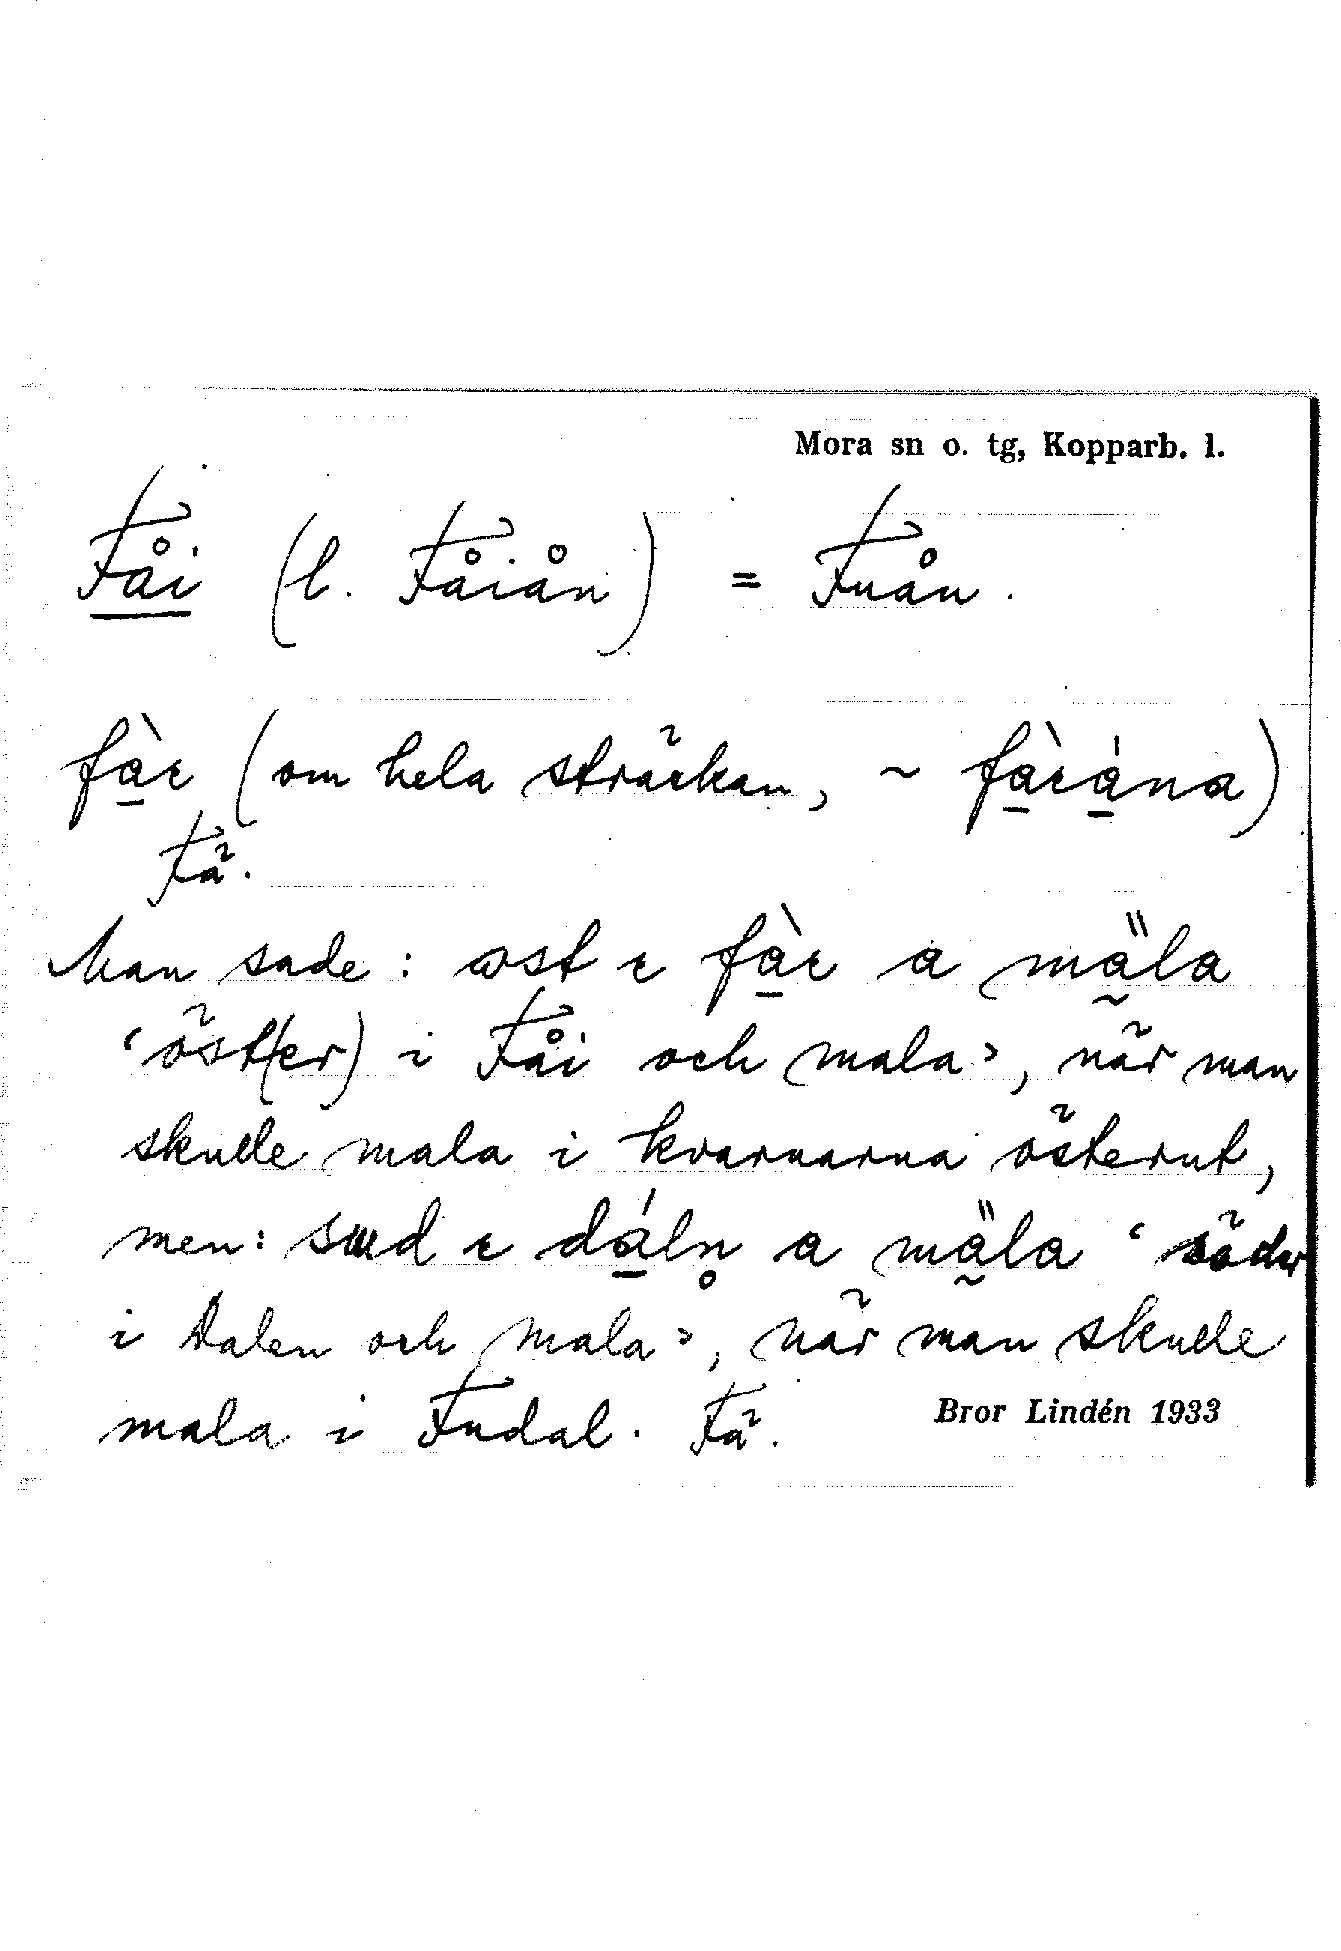 Mora sn o. tg, Kopparb. l.
Fåi (l. Fåiån) = Fuån.
fà̱ɩ (om hela sträckan, ~ fà̱ɩá̱na)
Fä.
Man sade: ɷst ɩ fà̱ɩ a mä̰la
‘öst(er) i Fåi och mala’, när man
skulle mala i kvarnarna österut,
men: sɯd ɩ dá̱ln̥ a mä̰la ‘söder
i Dalen och mala’, när man skulle
mala i Fudal. Fä.
Bror Lindén 1933